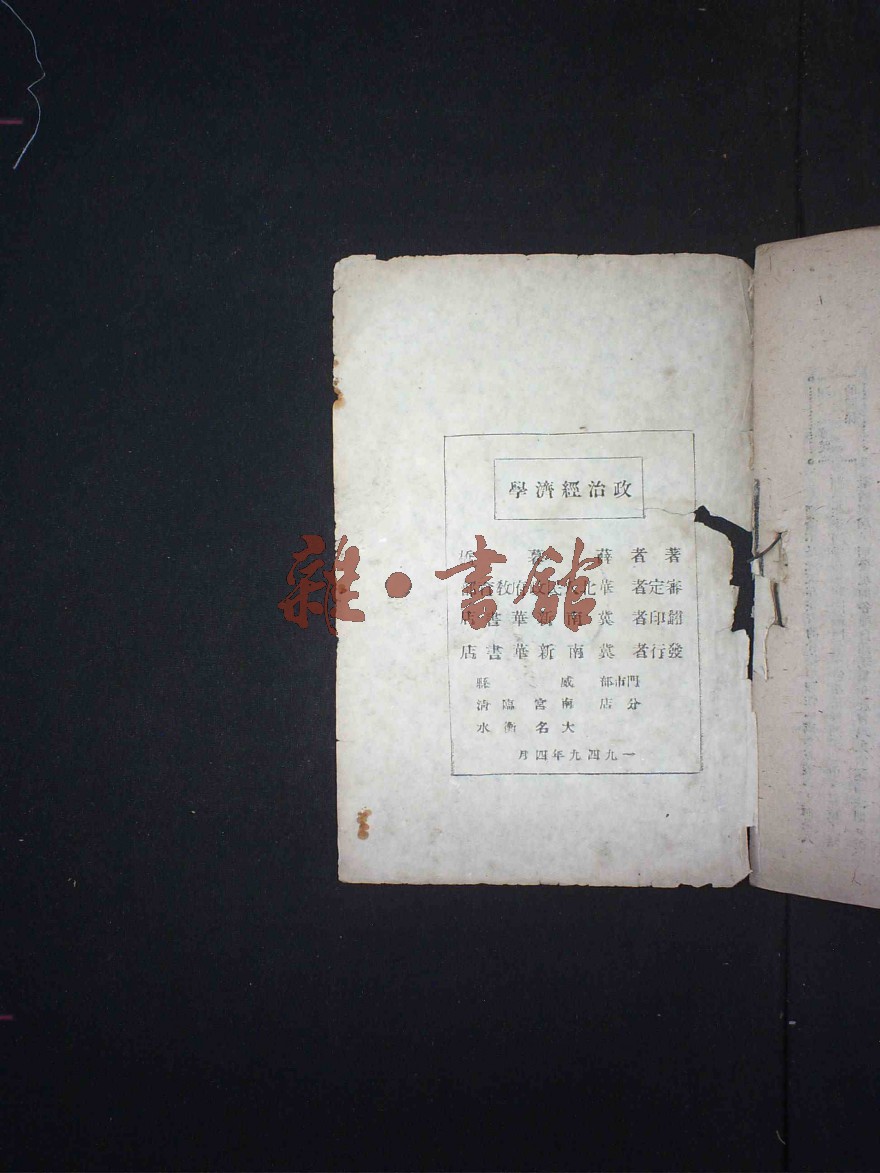 政治經濟學
著者 薛暮橋
審定者 華北人民政府教育部
翻印者 冀南新華書店
發行者 冀南新華書店
門市部 威縣
分店 南宮 臨清
大名 衡水
一九四九年四月
雜·書館